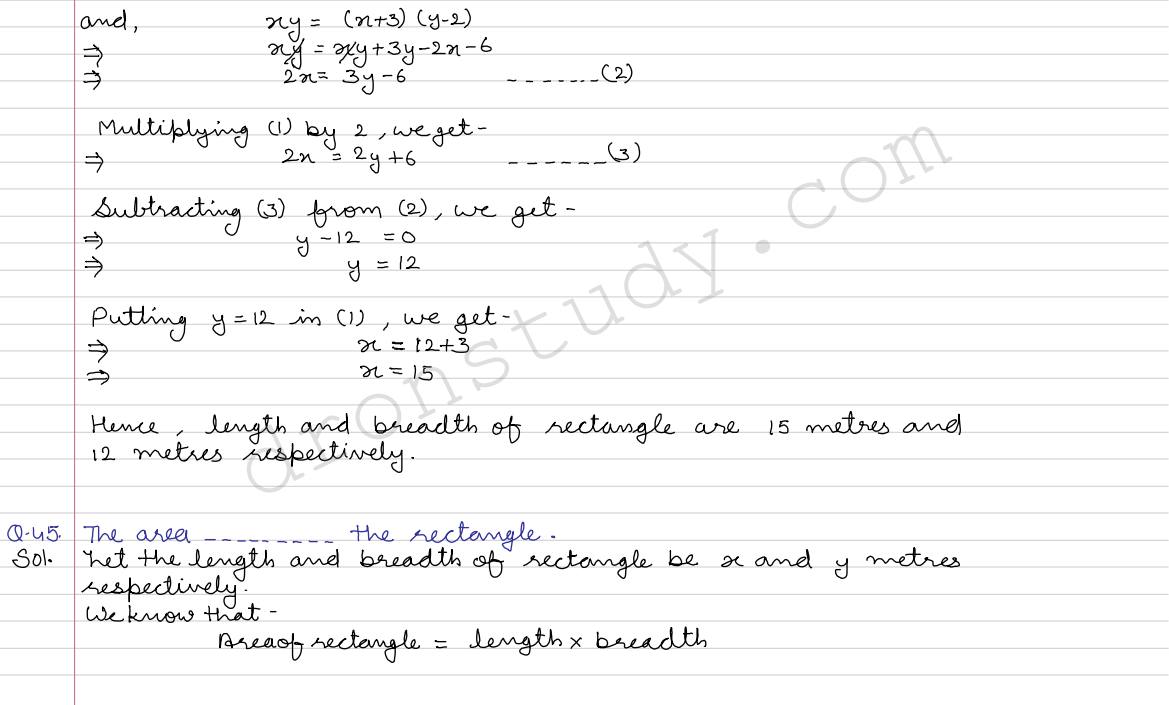 and, xy = (x+3) (y-2)
⇒ xy = xy+3y-2x-6
⇒ 2x= 3y-6 -------(2)
Multiplying (1) by 2, we get-
⇒ 2x = 2y+6 ------(3)
Subtracting (3) from (2), we get-
⇒ y-12 =0
⇒ y = 12
Putting y=12 in (1), we get-
⇒ x = 12+3
⇒ x = 15
Hence, length and breadth of rectangle are 15 metres and
12 metres respectively.
Q.45. The area --------- the rectangle.
Sol. Let the length and breadth of rectangle be x and y metres
respectively.
We know that-
Area of rectangle = length × breadth
dronstudy.com